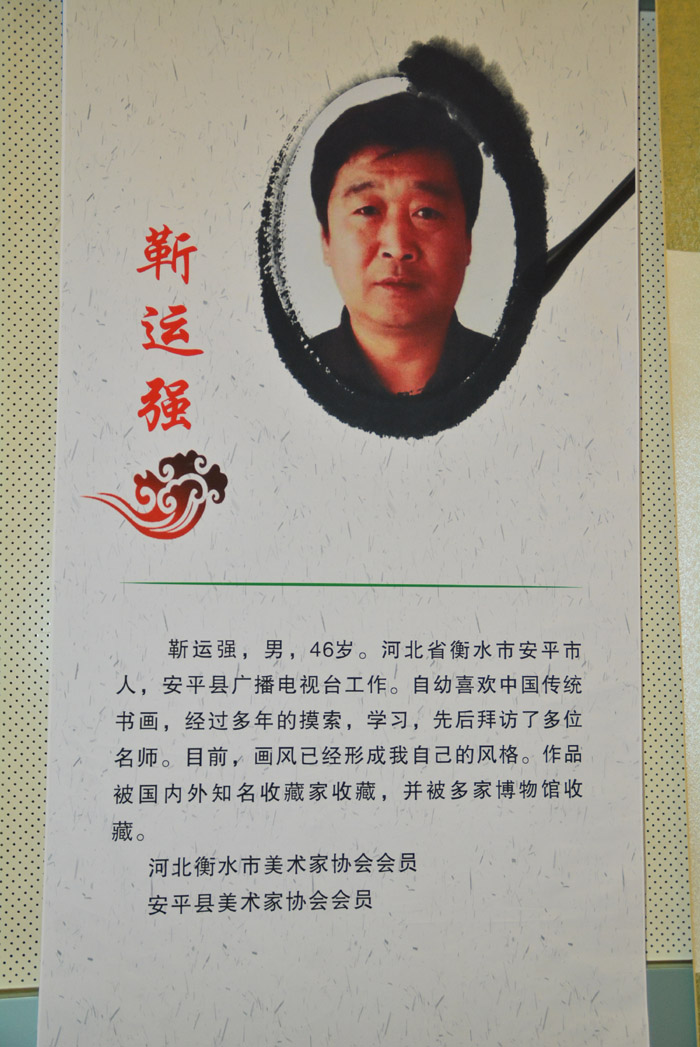 靳运强
靳运强，男，46岁。河北省衡水市安平市
人，安平县广播电视台工作。自幼喜欢中国传统
书画，经过多年的摸索，学习，先后拜访了多位
名师。目前，画风已经形成我自己的风格。作品
被国内外知名收藏家收藏，并被多家博物馆收
藏。
河北衡水市美术家协会会员
安平县美术家协会会员